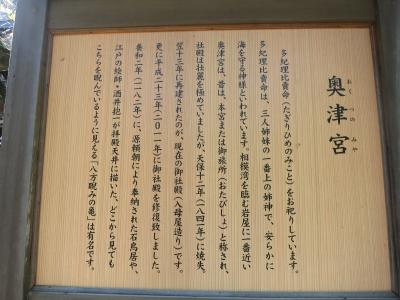 奥津宮
おくつのみや
多紀理比賣命(たぎりひめのみこと)をお祀りしています。
多紀理比賣命は、三人姉妹の一番上の姉神で、安らかに
海を守る神様といわれています。相模湾を臨む岩屋に一番近い
奥津宮は、昔は、本宮または御旅所(おたびしょ)と称され、
社殿は壮麗を極めていましたが、天保十二年(一八四一年)に焼失、
翌十三年に再建されたのが、現在の御社殿(入母屋造り)です。
更に平成二十三年(二〇一一年)に御社殿を修復致しました。
養和二年(一一八二年)に、源頼朝により奉納された石鳥居や、
江戸の絵師・酒井抱一が拝殿天井に描いた、どこから見ても
こちらを睨んでいるように見える「八方睨みの亀」は有名です。